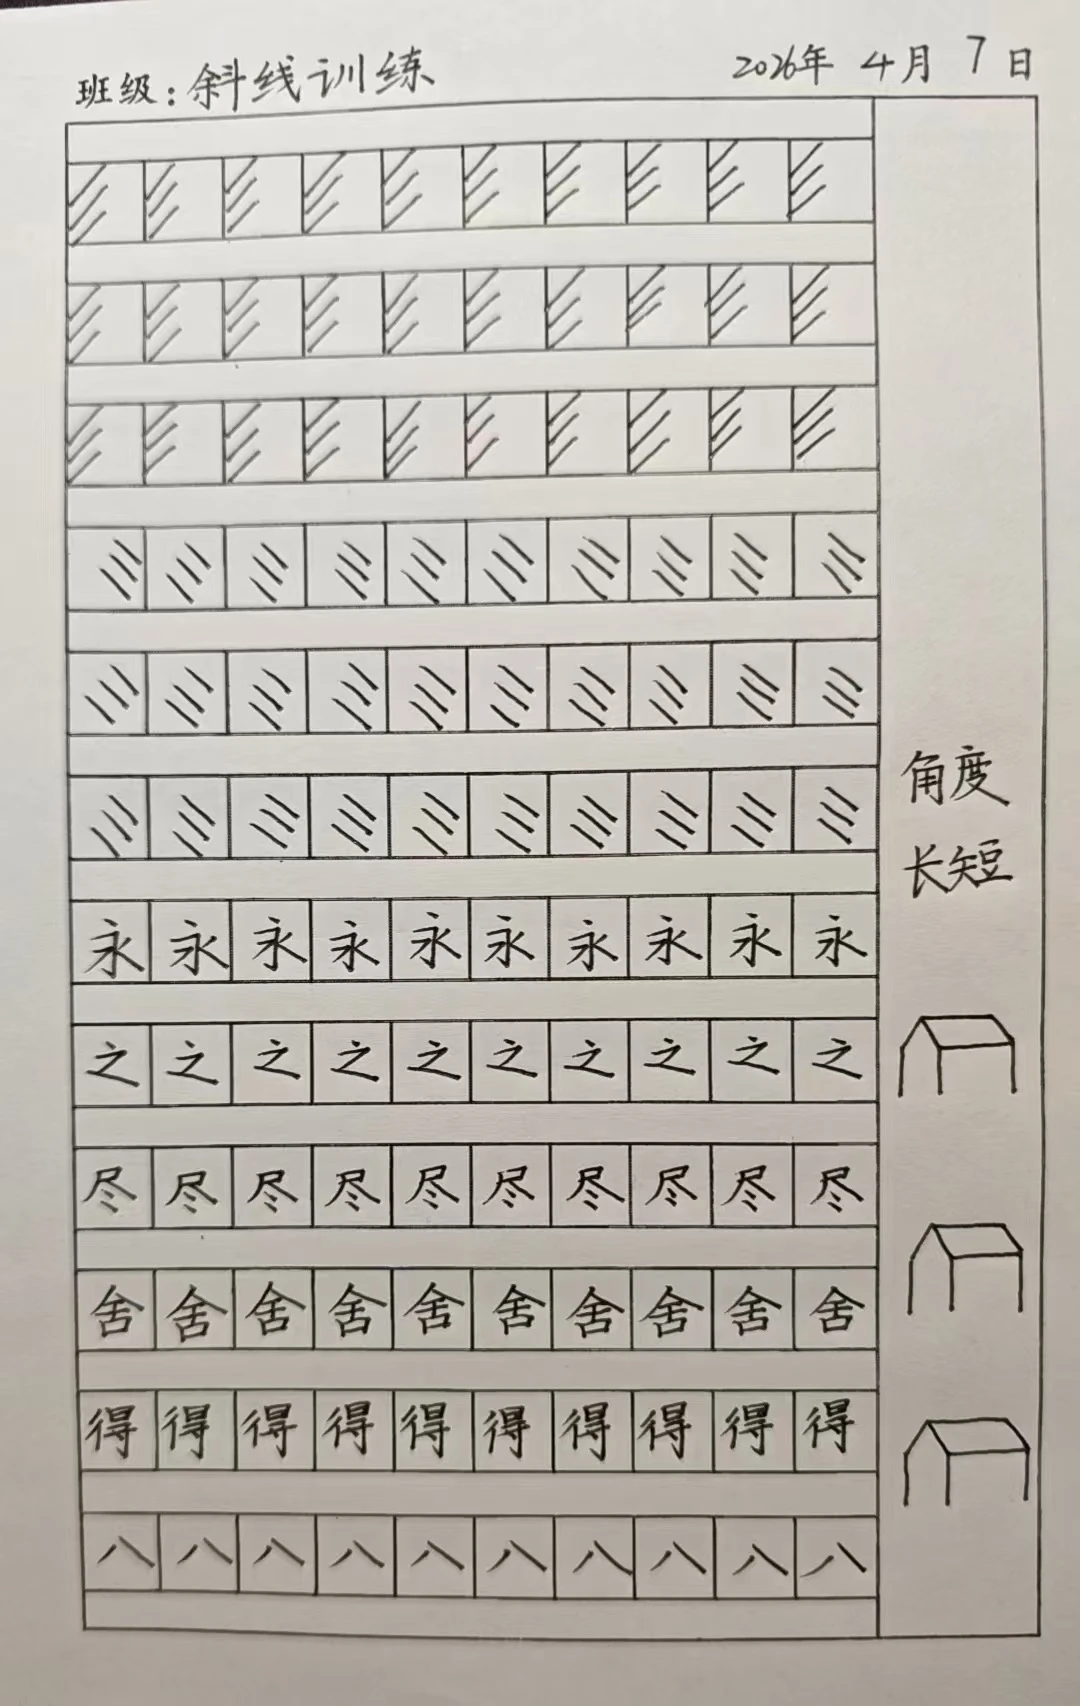 班级：斜线训练 2026年 4月 7日
角度
长短
永永永永永永永永永永
之之之之之之之之之之
尽尽尽尽尽尽尽尽尽尽
舍舍舍舍舍舍舍舍舍舍
得得得得得得得得得得
八八八八八八八八八八